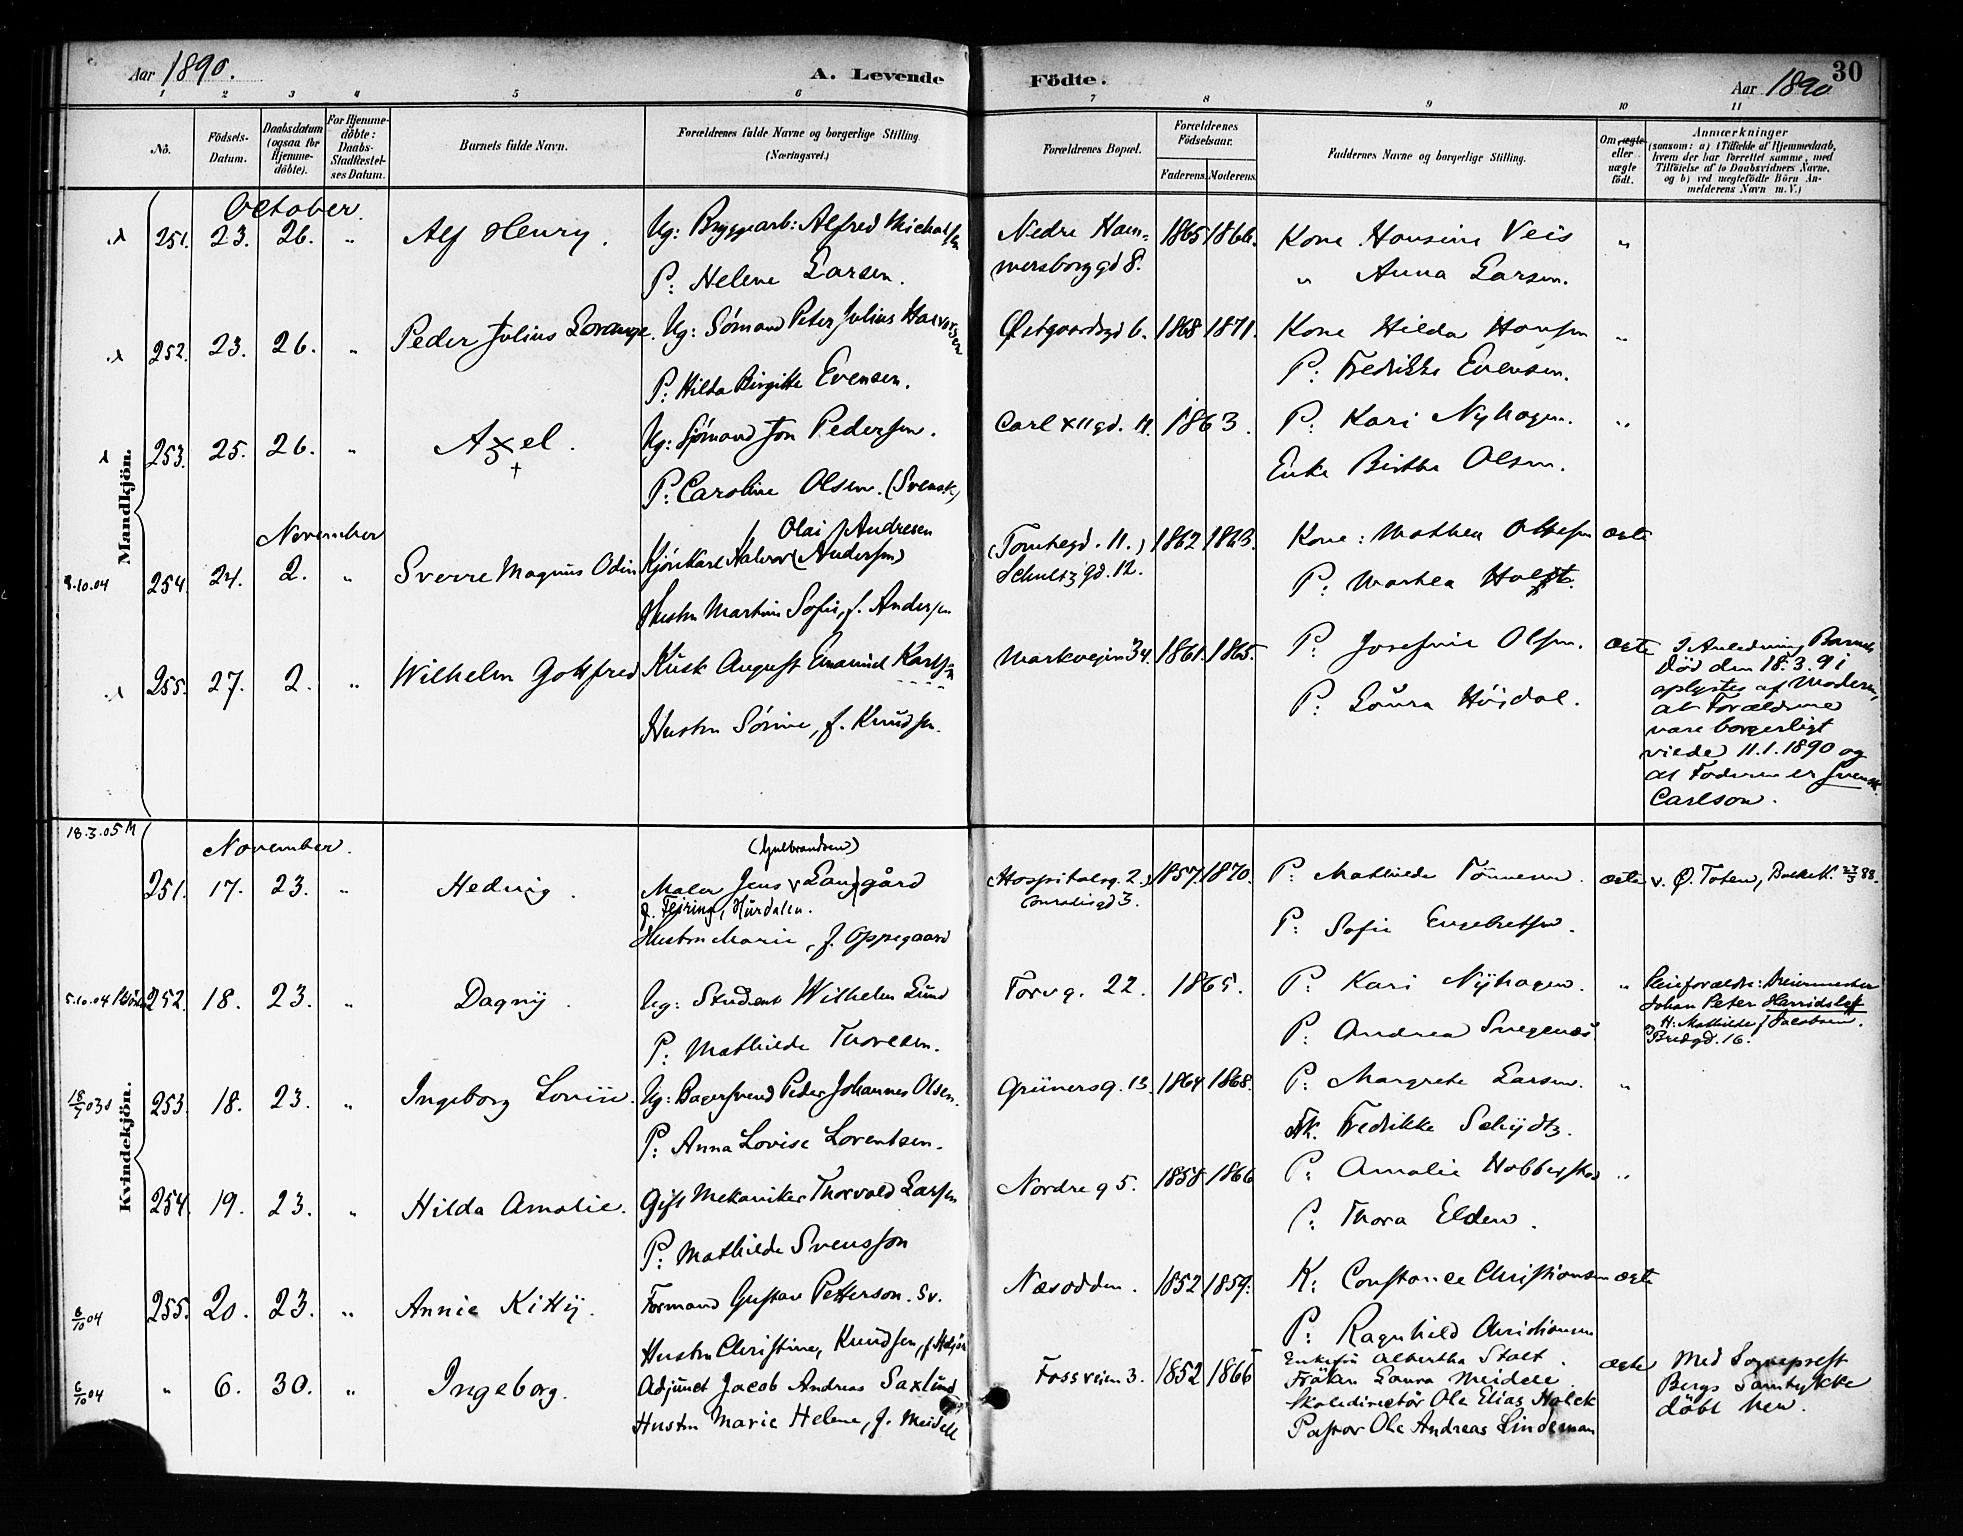 Aar 1890.
A. Levende Födte.
Aar 1890
30
1 2 3 4 5 6 7 8 9 10 11
No.
Födsels-Datum.
Daabsdatum (ogsaa for Hjemmedöbte).
For Hjemmedöbte: Daabs-Stadfæstelses Datum.
Barnets fulde Navn.
Forældrenes fulde Navne og borgerlige Stilling. (Næringsvei.)
Forældrenes Bopæl.
Forældrenes Födselsaar.
Faderens. Moderens.
Faddernes Navne og borgerlige Stilling.
Om ægte eller uægte födt.
Anmærkninger
(saasom: a) i Tilfælde af Hjemmedaab, hvem der har forrettet samme, med Tilföielse af to Daabsvidners Navne, og b) ved uægtefödte Börn Anmelderens Navn m. V.)
Mandkjön.
October.
251. 23. 26. " Alf Henry. Ug: Bryggearb: Alfred Michalsen Nedre Ham- 1865 1866. Kone Hansine Veis "
P: Helene Larsen. mersborggd 8. " Anna Larsen.
252. 23. 26. " Peder Julius Lorange. Ug: Sømand Peter Julius Halvorsen Østgaardsgd 6. 1868 1871. Kone Hilda Hansen "
P: Hilda Birgitte Evensen. P: Fredrikke Evensen.
253. 25. 26. " Axel. Ug: Sjømand Jon Pedersen. Carl XII gd. 11. 1863. P: Kari Nyhagen. "
P: Caroline Olsen. (Svensk) Enke Birthe Olsen.
November
Olai Andresen
8.10.04 254. 24. 2. " Sverre Magnus Odin Kjörekarl Halvor (Andersen) (Tomtegd. 11.) 1862 1863. Kone: Mathea Ottesen ægte
Schultzgd. 12. P: Marthea Holst.
Hustru Martine Sofie, f. Andersen
255. 27. 2. " Wilhelm Gottfred Kusk August Emanuel Karlsen Markveien 34. 1861. 1865. P: Josefine Olsen. ægte
Hustru Sørine, f. Knudsen. P: Laura Høidal.
I Anledning Barnets
Död den 18.3.91
oplystes af Moderen,
at Forældrene
vare borgerligt
viede 11.1.1890 og
at Faderen er Svensk.
Carlson.
Kvindekjön.
18.3.05 M
November.
(Gulbrandsen)
251. 17. 23. " Hedvig. Maler Jens Langgård (Hospitalsg. 2.) 1857. 1870. P: Mathilde Tönnesen. ægte v. Ø. Toten,
f. Fejring, Hurdalen.
Hustru Marie, f. Oppegaard P: Sofie Engebretsen.
5.10.04 252. 18. 23. " Dagny. Ug: Student Wilhelm Lund Torvg. 22. 1865. P: Kari Nyhagen. "
P: Mathilde Thoresen. P: Andrea
Pleieforældre:
Johan Peter Harridsleff
H: Mathilde f. Jacobsen.
Bredgd. 16.
18/9 03 253. 18. 23. " Ingeborg Lovise. Ug: Bagersvend Peder Johannes Olsen. Grünersg. 13. 1864 1868. P: Margrete Larsen. "
P: Anna Lovise Lorentsen. Fr. Fredrikke Schydtz.
254. 19. 23. " Hilda Amalie. Gift Mekaniker Thorvald Larsen Nordreg 5. 1858 1866 P: Amalie "
P: Mathilde Svensson P: Thora Elden.
6/10 04 255. 20. 23. " Annie Kitty. Formand Gustav Petterson. Sv. Næsodden. 1852 1859. K: Constance Christiansen ægte
Hustru Christine, Knudsen, P: Ragnhild Christiansen
6/10 04 " 6. 30. " Ingeborg. Adjunct Jacob Andreas Saxlund Fossveien 3. 1852 1866 Enkefru Albertha Stalt. ægte Med Sogneprest
Hustru Marie Helene, f. Meidell Fröken Laura Meidell Bergs Samtykke
Skoledirektör Ole Elias Holck döbt her.
Pastor Ole Andreas Lindeman